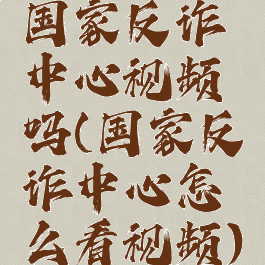 国家反诈
中心视频
吗(国家反
诈中心怎
么看视频)